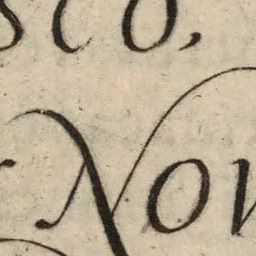 sco,
Nov